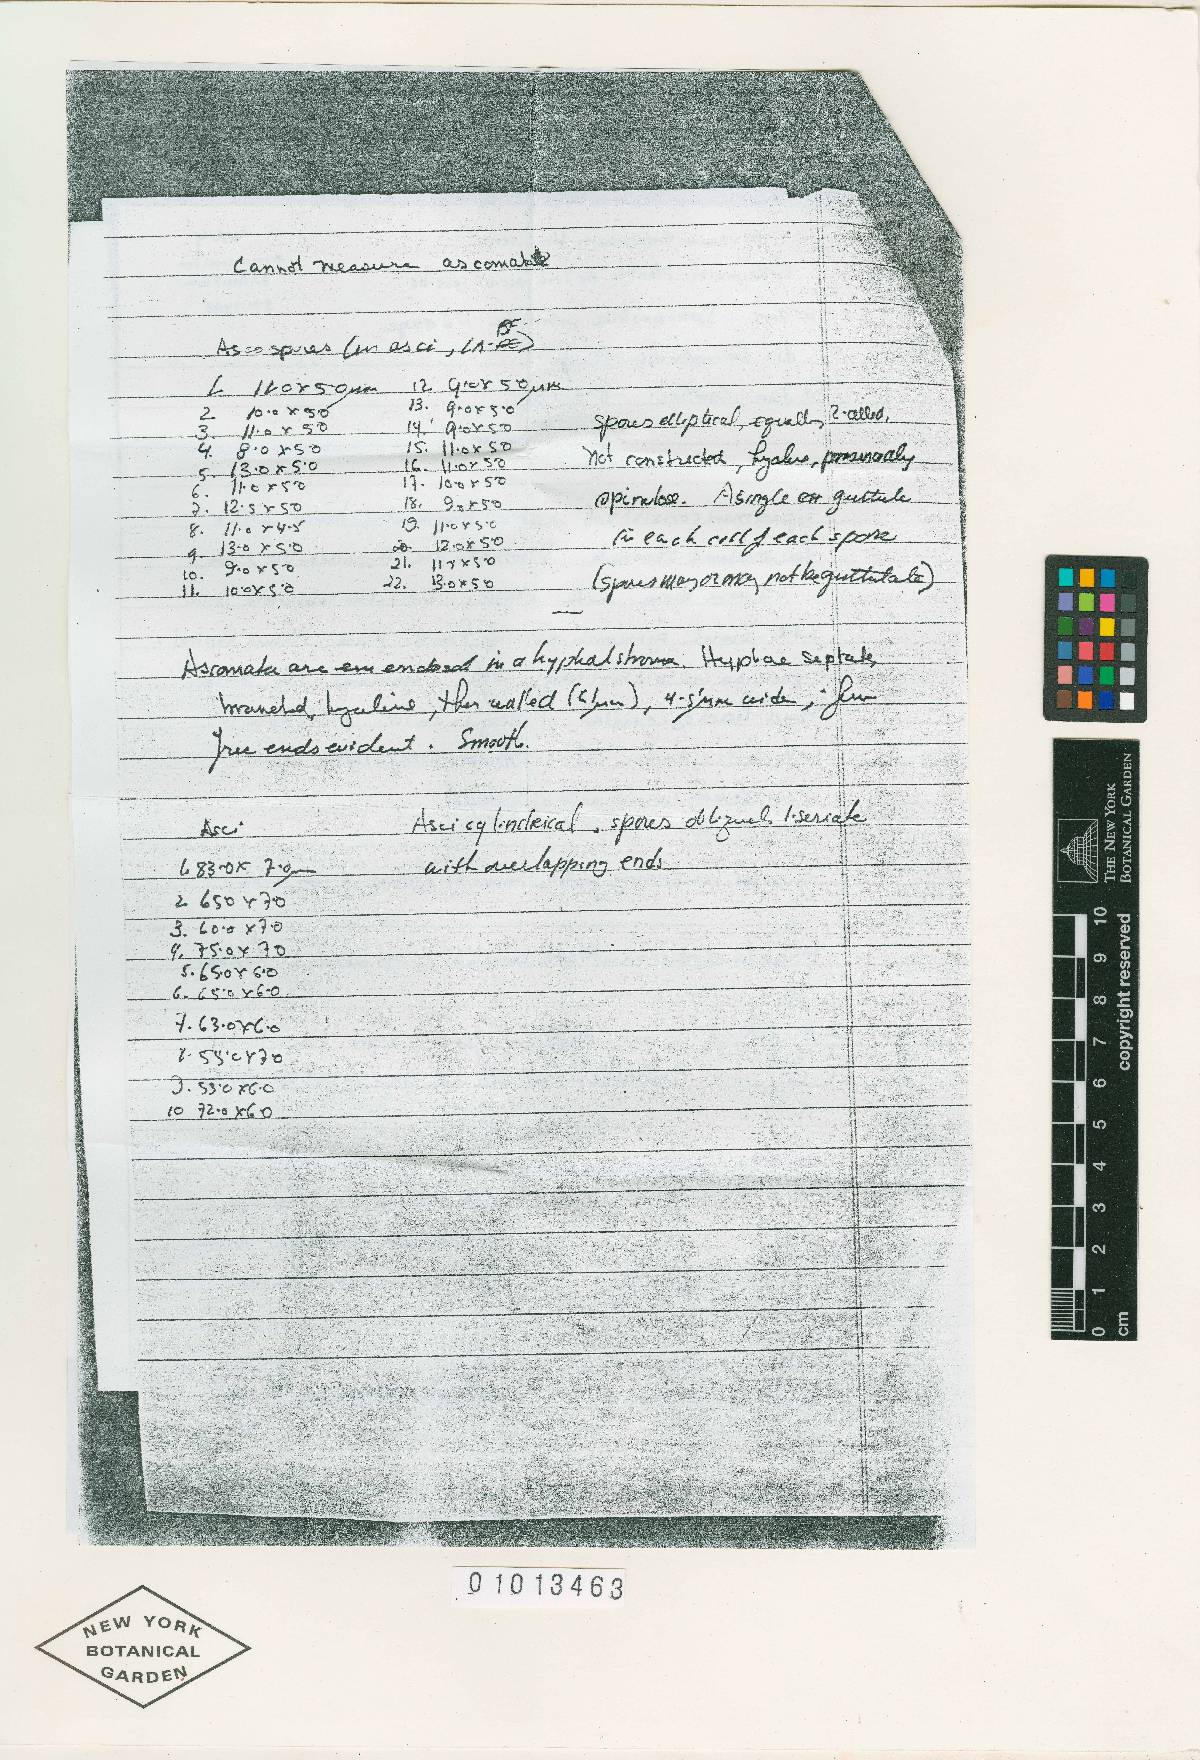 Cannot measure ascomata
Ascospores (in asci, LA-BF)
1. 11.0 x 5.0 µm
2. 10.0 x 5.0
3. 11.0 x 5.0
4. 8.0 x 5.0
5. 13.0 x 5.0
6. 11.0 x 5.0
7. 12.5 x 5.0
8. 11.0 x 4.5
9. 13.0 x 5.0
10. 9.0 x 5.0
11. 10.0 x 5.0
12. 9.0 x 5.0 µm
13. 9.0 x 5.0
14. 9.0 x 5.0
15. 11.0 x 5.0
16. 11.0 x 5.0
17. 10.0 x 5.0
18. 9.0 x 5.0
19. 11.0 x 5.0
20. 12.0 x 5.0
21. x 5.0
22. 13.0 x 5.0
spores elliptical, equally 2-celled,
not constricted, hyaline,
spinulose. A single guttule
in each cell of each spore
(spores may or may not be guttulate)
Ascomata are enclosed in a hyphal stroma. Hyphae septate,
branched, hyaline, thin walled (<1µm), 4-5µm wide; few
free ends evident. Smooth.
Asci
1. 83.0 x 7.0 µm
2. 65.0 x 7.0
3. 60.0 x 7.0
4. 75.0 x 7.0
5. 65.0 x 6.0
6. 65.0 x 6.0
7. 63.0 x 6.0
8. x 7.0
9. 53.0 x 6.0
10 72.0 x 6.0
Asci cylindrical, spores obliquely 1-seriate
with overlapping ends
01013463
NEW YORK
BOTANICAL
GARDEN
THE NEW YORK
BOTANICAL GARDEN
0 1 2 3 4 5 6 7 8 9 10
cm
copyright reserved